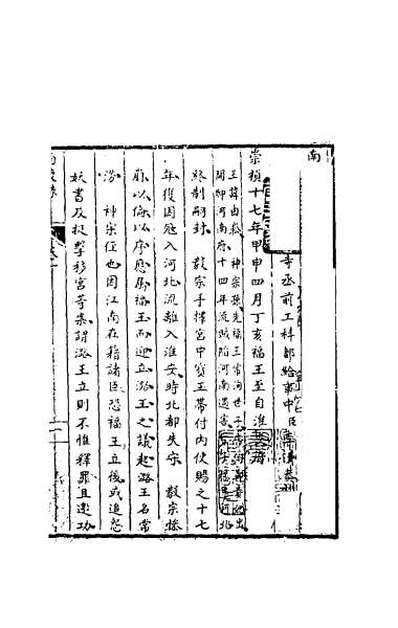 南
寺丞前工科都給事中臣李清恭
崇禎十七年甲申四月丁亥福王至自淮
王諱由崧 神宗孫先福王常洵世子
開邸河南府十四年流賊陷河南遇害
終制嗣封 毅宗手擇宮中寶玉帶付內使賜之十七
年復因寇入河北流離入淮安時北都失守 毅宗慘
崩以倫以序應屬福王而迎立潞王之議起潞王名常
淓 神宗侄也因江南在籍諸臣恐福王立後或追怨
妖書及挺擊移宮等案謂潞王立則不惟釋罪且邀功